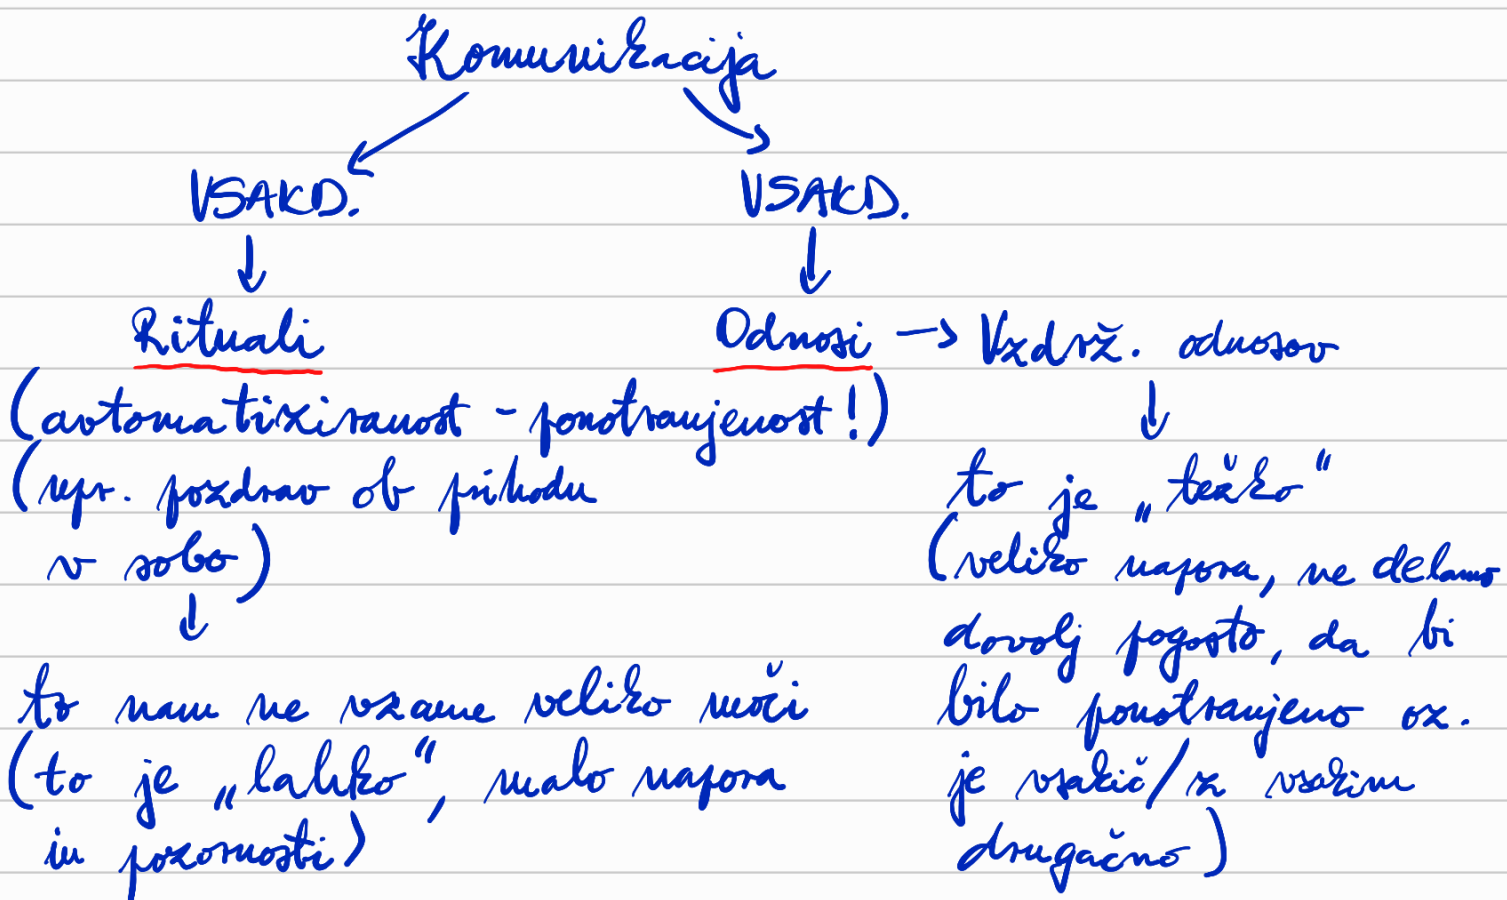 Komunikacija
VSAKD. VSAKD.
Rituali Odnosi → Vzdrž. odnosov
(avtomatiziranost - ponotranjenost!)
(npr. pozdrav ob prihodu
v sobo)
to nam ne vzame veliko moči
(to je „lahko“, malo napora
in pozornosti)
to je „težko“
(veliko napora, ne delamo
dovolj pogosto, da bi
bilo ponotranjeno oz.
je vsakič/z vsakim
drugačno)